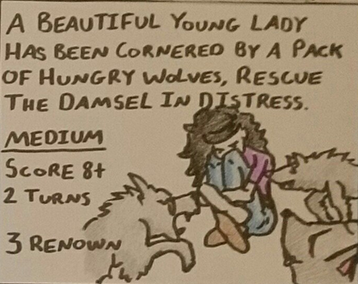 A BEAUTIFUL YOUNG LADY
HAS BEEN CORNERED BY A PACK
OF HUNGRY WOLVES, RESCUE
THE DAMSEL IN DISTRESS.
MEDIUM
SCORE 8+
2 TURNS
3 RENOWN